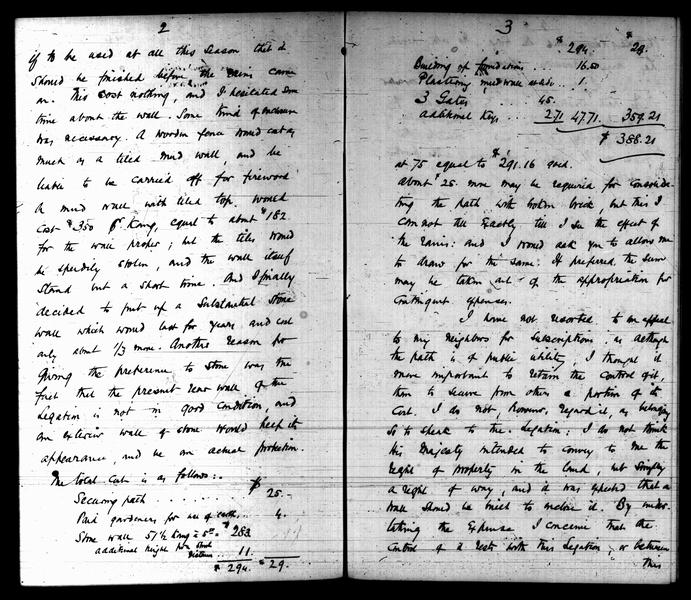 2
if to be used at all this season that it
should be finished before the rains came
on. This cost nothing, and I hesitated some
time about the wall. Some kind of enclosure
was necessary. A wooden fence would cost as
much as a tiled mud wall, and be
liable to be carried off for firewood
A mud wall with tiled top, would
cost $3.50 pr Kang, equal to about $182
for the wall proper; but the tiles would
be speedily stolen, and the wall itself
stand but a short time. And I finally
decided to put up a substantial stone
wall which would last for years, and cost
only about 1/3 more. Another reason for
giving the preference to stone was the
fact that the present rear wall of the
Legation is not in good condition, and
an exterior wall of stone would keep its
appearance, and be an actual protection.
The total cost is as follows:
Securing path . . . . . . $ 25.-
Paid gardeners for use of 4.
Stone wall 57 1/2 Kang = 5.00 $ 283
additional height for some
distance . . 11.
$ 294. $ 29.
3
$ 294. $ 29.
Building of foundations . . . 16.50
Plastering mud wall . . . 1.
3 Gates 45.
additional Keys . . . 2.71 47.71 359.21
$ 388.21
at 75 equal to $291.16 gold.
about $25. more may be required for consolida-
ting the path with broken brick, but this I
can not tell exactly till I see the effect of
the rains: and I would ask you to allow me
to draw for the same. If preferred the sum
may be taken out of the appropriation for
contingent expenses.
I have not resorted to an appeal
to my neighbors for subscriptions, as although
the path is of public utility, I thought it
more important to retain the control of it,
than to secure from others a portion of its
cost. I do not, however, regard it, as belonging
so to speak to the Legation: I do not think
His Majesty intended to convey to me the
right of property in the land, but simply
a right of way, and it was expected that a
wall should be built to enclose it. By under-
taking the expense I conceive that the
control of it rests with this Legation, or between
this